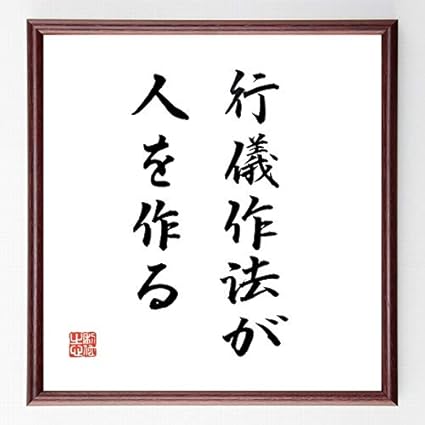 行儀作法が
人を作る